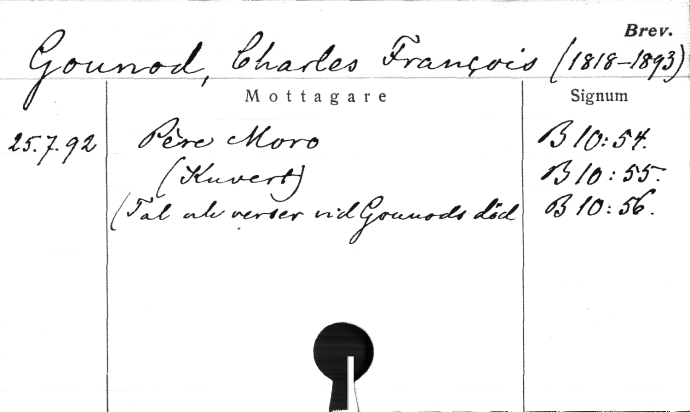 Brev.
Gounod, Charles François (1818-1893)
Mottagare Signum
25.7.92 Père Moro B 10:54.
(Kuvert) B 10:55.
(Tal och verser vid Gounods död B 10:56.